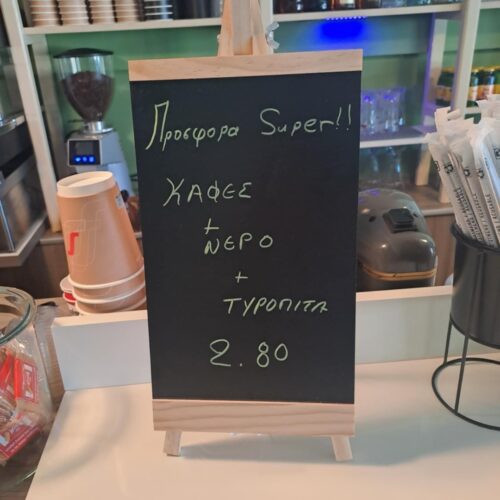 Προσφορα Super!!
ΚΑΦΕΣ
+
ΝΕΡΟ
+
ΤΥΡΟΠΙΤΑ
2.80